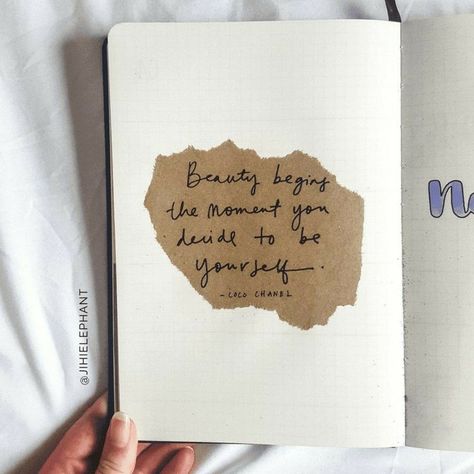 Beauty begins
the moment you
decide to be
yourself.
- COCO CHANEL
@JIHIELEPHANT